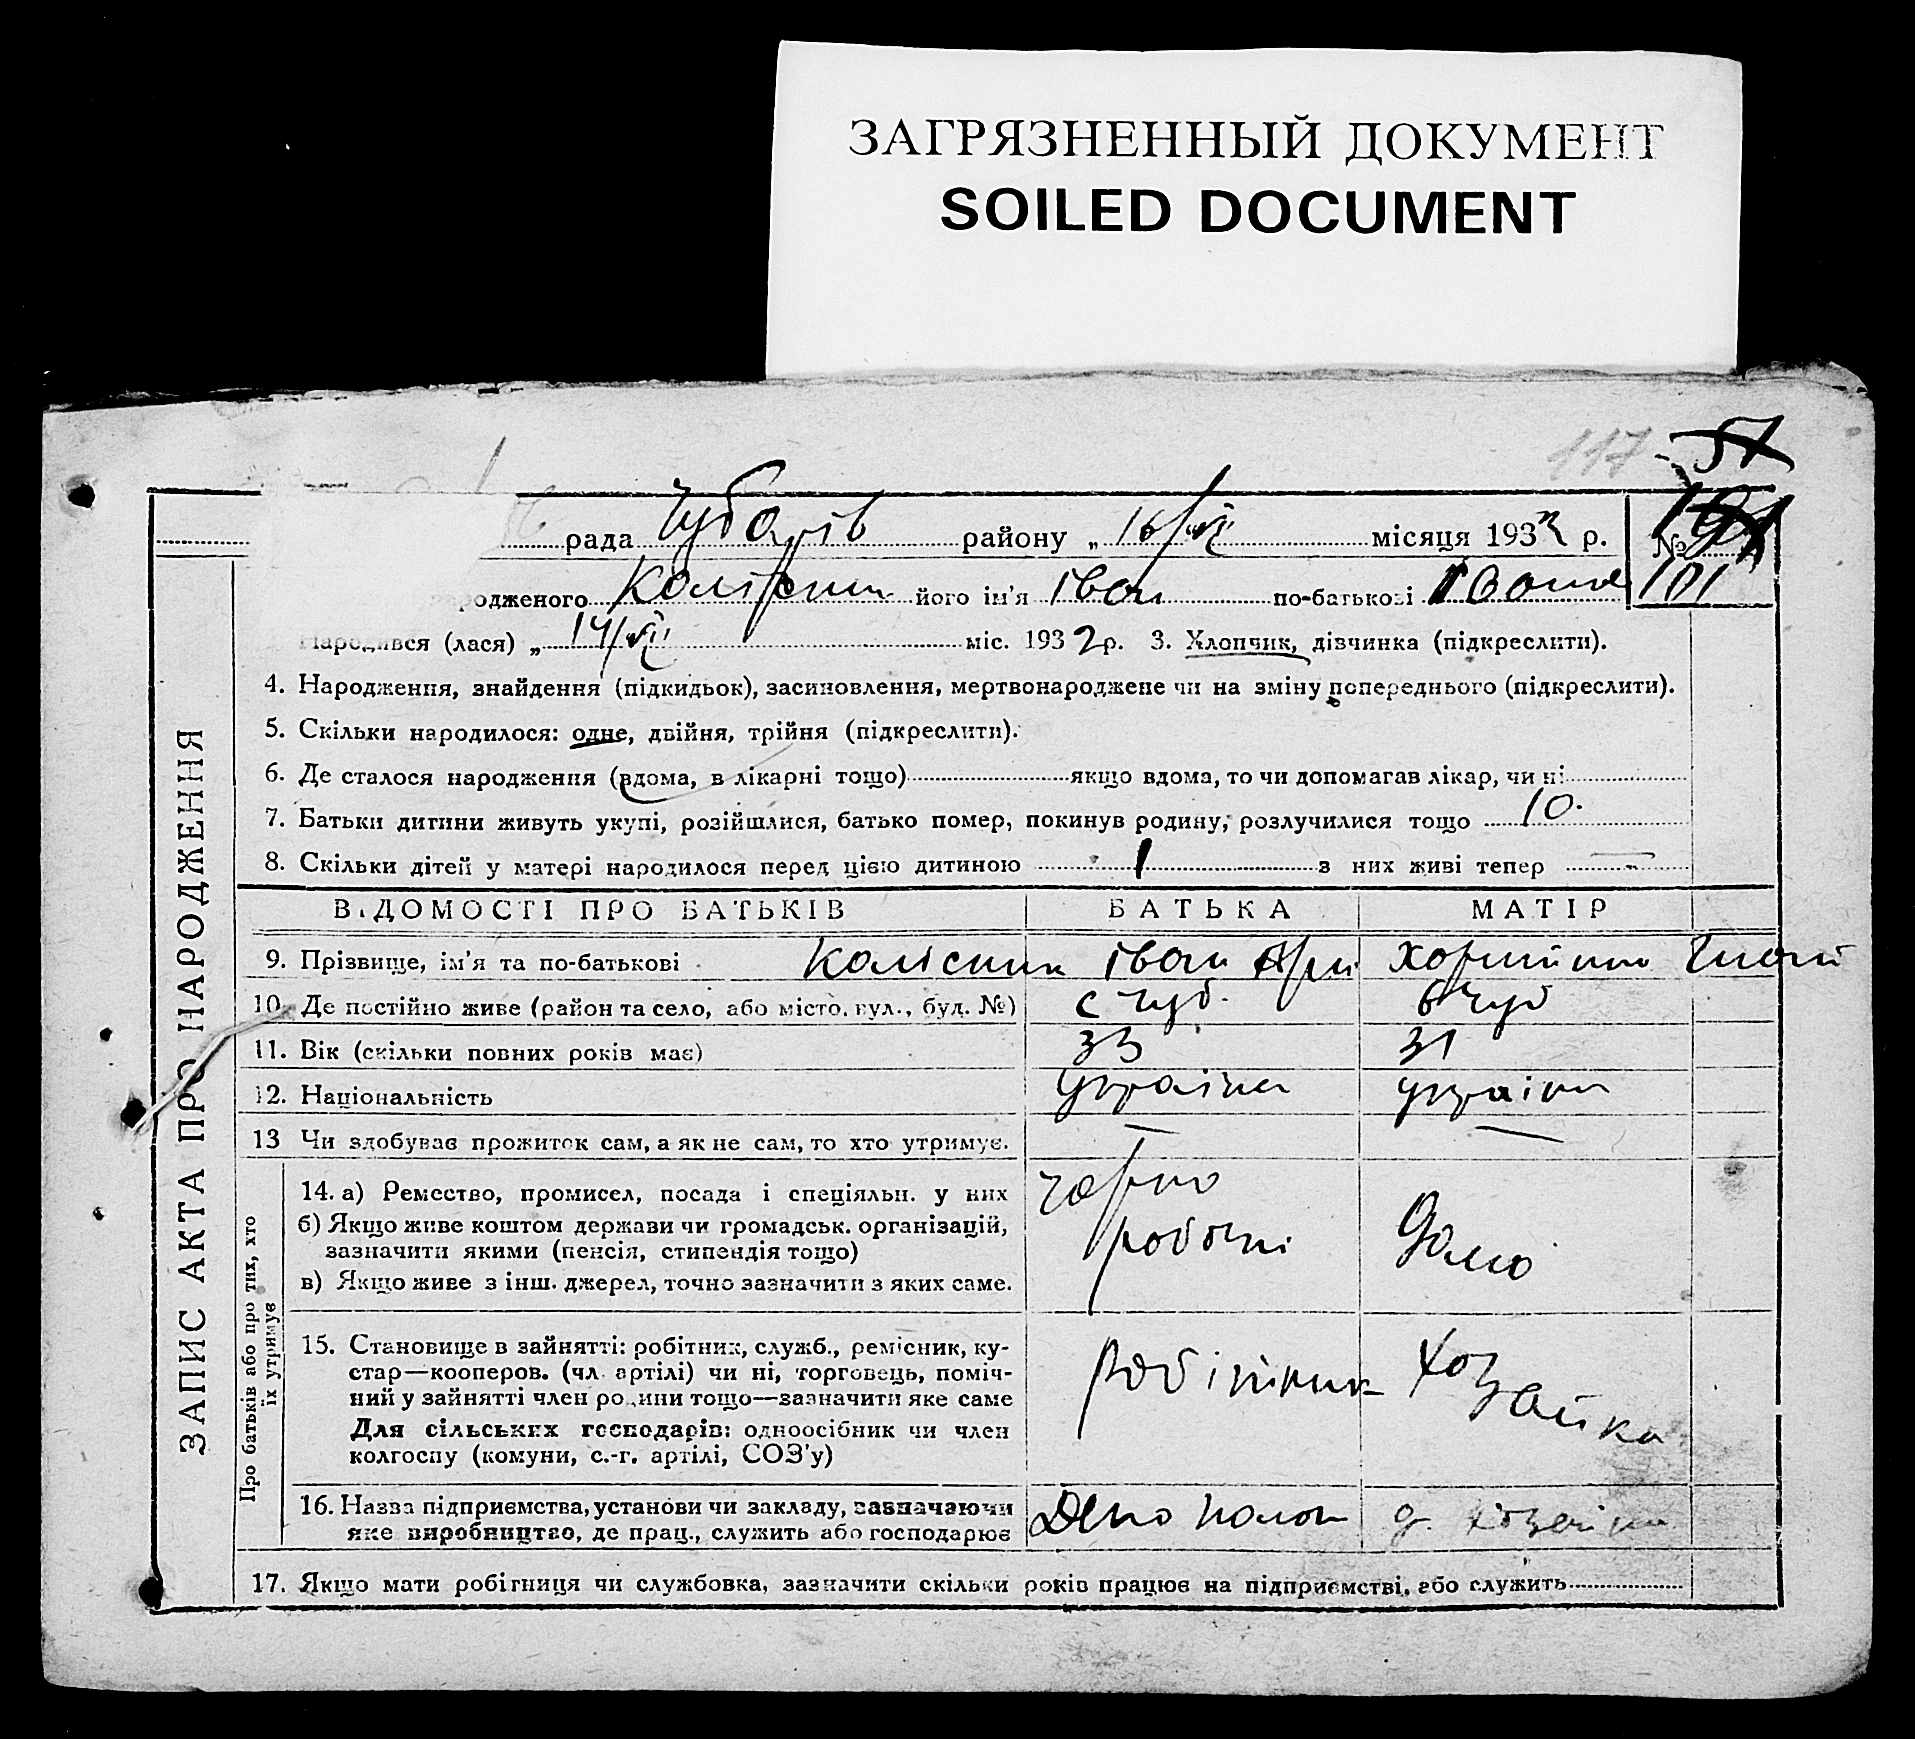 ЗАГРЯЗНЕННЫЙ ДОКУМЕНТ
SOILED DOCUMENT
117 57
рада Чубарів району „ 16/VII місяця 1932 р. №
родженого Колісник його ім'я Іван по-батькові Іванов 101
Народився (лася) „ 14/VII міс. 1932 р. 3. Хлопчик, дівчинка (підкреслити).
4. Народження, знайдення (підкидьок), засиновлення, мертвонароджене чи на зміну попереднього (підкреслити).
5. Скільки народилося: одне, двійня, трійня (підкреслити).
6. Де сталося народження (вдома, в лікарні тощо) якщо вдома, то чи допомагав лікар, чи ні
7. Батьки дитини живуть укупі, розійшлися, батько помер, покинув родину, розлучилися тощо 10.
8. Скільки дітей у матері народилося перед цією дитиною 1 з них живі тепер –
ВІДОМОСТІ ПРО БАТЬКІВ БАТЬКА МАТІР
9. Прізвище, ім'я та по-батькові Колісник Іван
10. Де постійно живе (район та село, або місто, вул., буд. №) с Чуб. Чуб
11. Вік (скільки повних років має) 33 31
12. Національність україн україн
13 Чи здобуває прожиток сам, а як не сам, то хто утримує. — —
14. а) Ремество, промисел, посада і спеціяльн. у них чорно
б) Якщо живе коштом держави чи громадськ. організацій, робочі
зазначити якими (пенсія, стипендія тощо) Домо
в) Якщо живе з інш. джерел, точно зазначити з яких саме.
15. Становище в зайнятті: робітник, служб., ремісник, ку-
стар—кооперов. (чл. артілі) чи ні, торговець, поміч- робітник Хоз
ний у зайнятті член родини тощо—зазначити яке саме яйка
Для сільських господарів: одноосібник чи член
колгоспу (комуни, с.-г. артілі, СОЗ'у)
16. Назва підприємства, установи чи закладу, зазначаючи Депо д.
яке виробництво, де прац., служить або господарює
17. Якщо мати робітниця чи службовка, зазначити скільки років працює на підприємстві, або служить
ЗАПИС АКТА ПРО НАРОДЖЕННЯ
Про батьків або про тих, хто
їх утримує